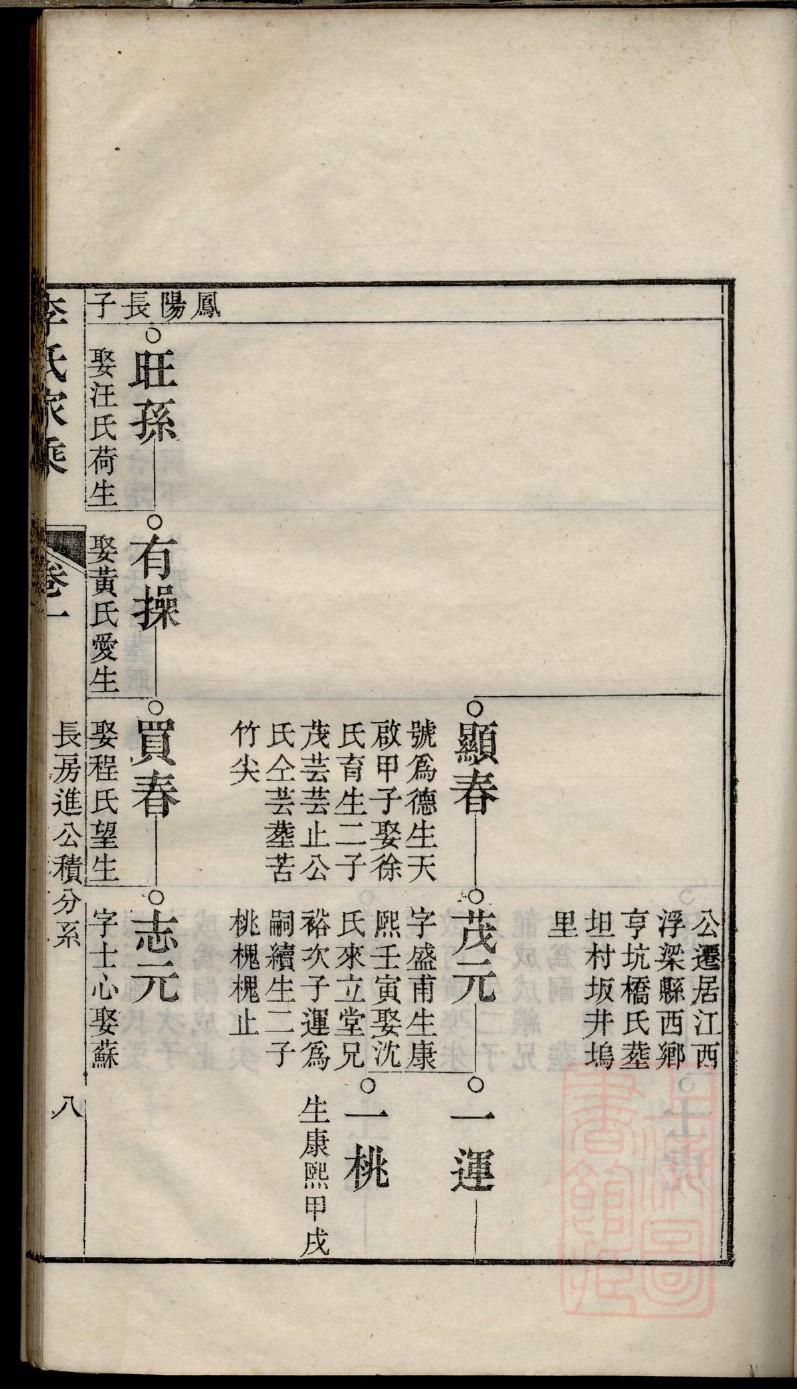 公遷居江西
浮梁縣西鄉
亨坑橋氏塟
坦村坂井塢
里
顯春
號爲德生天
啟甲子娶徐
氏育生二子
茂芸芸止公
氏仝芸塟苦
竹尖
茂元
字盛甫生康
熙壬寅娶沈
氏來立堂兄
裕次子運爲
嗣續生二子
桃槐槐止
一運
一桃
生康熙甲戌
鳳陽長子
旺孫
娶汪氏荷生
有操
娶黃氏愛生
買春
娶程氏望生
志元
字士心娶蘇
李氏家乘
卷一
長房進公積分系
八